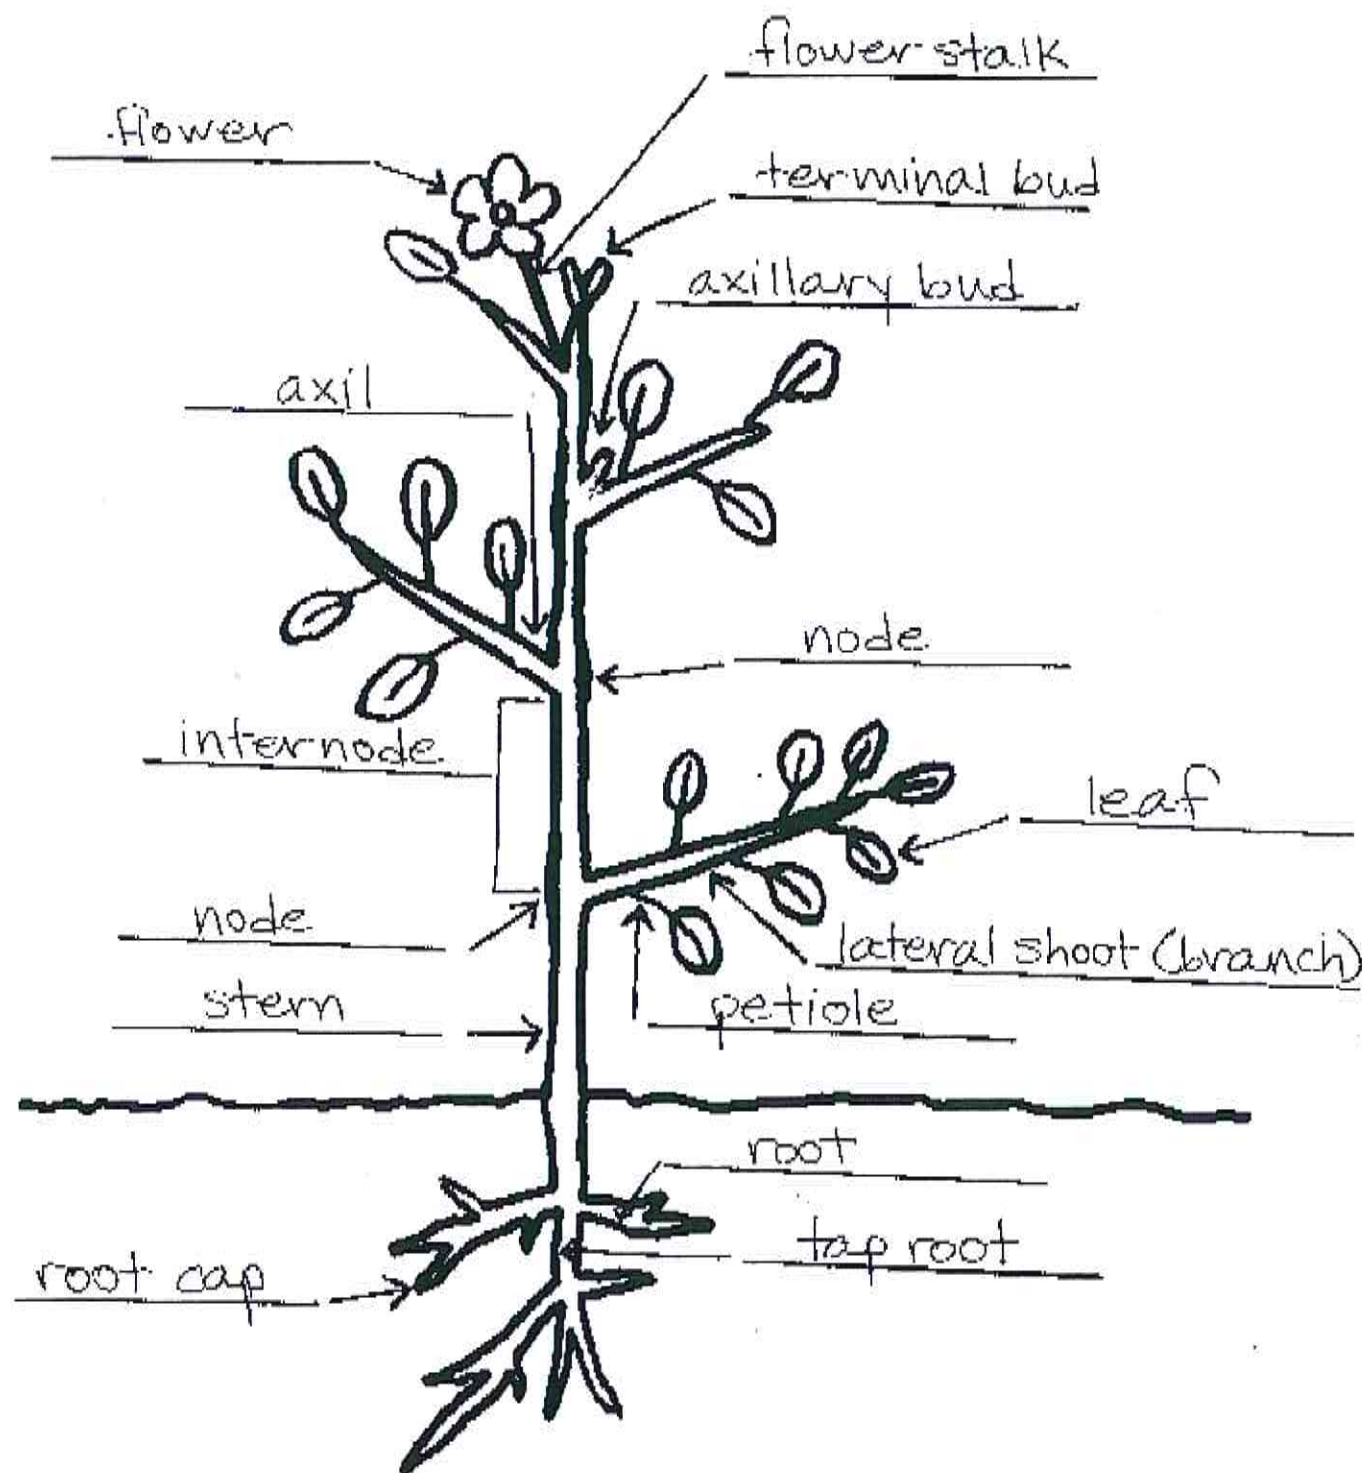 flower stalk
flower
terminal bud
axillary bud
axil
node
internode
leaf
node
lateral shoot (branch)
stem
petiole
root
tap root
root cap